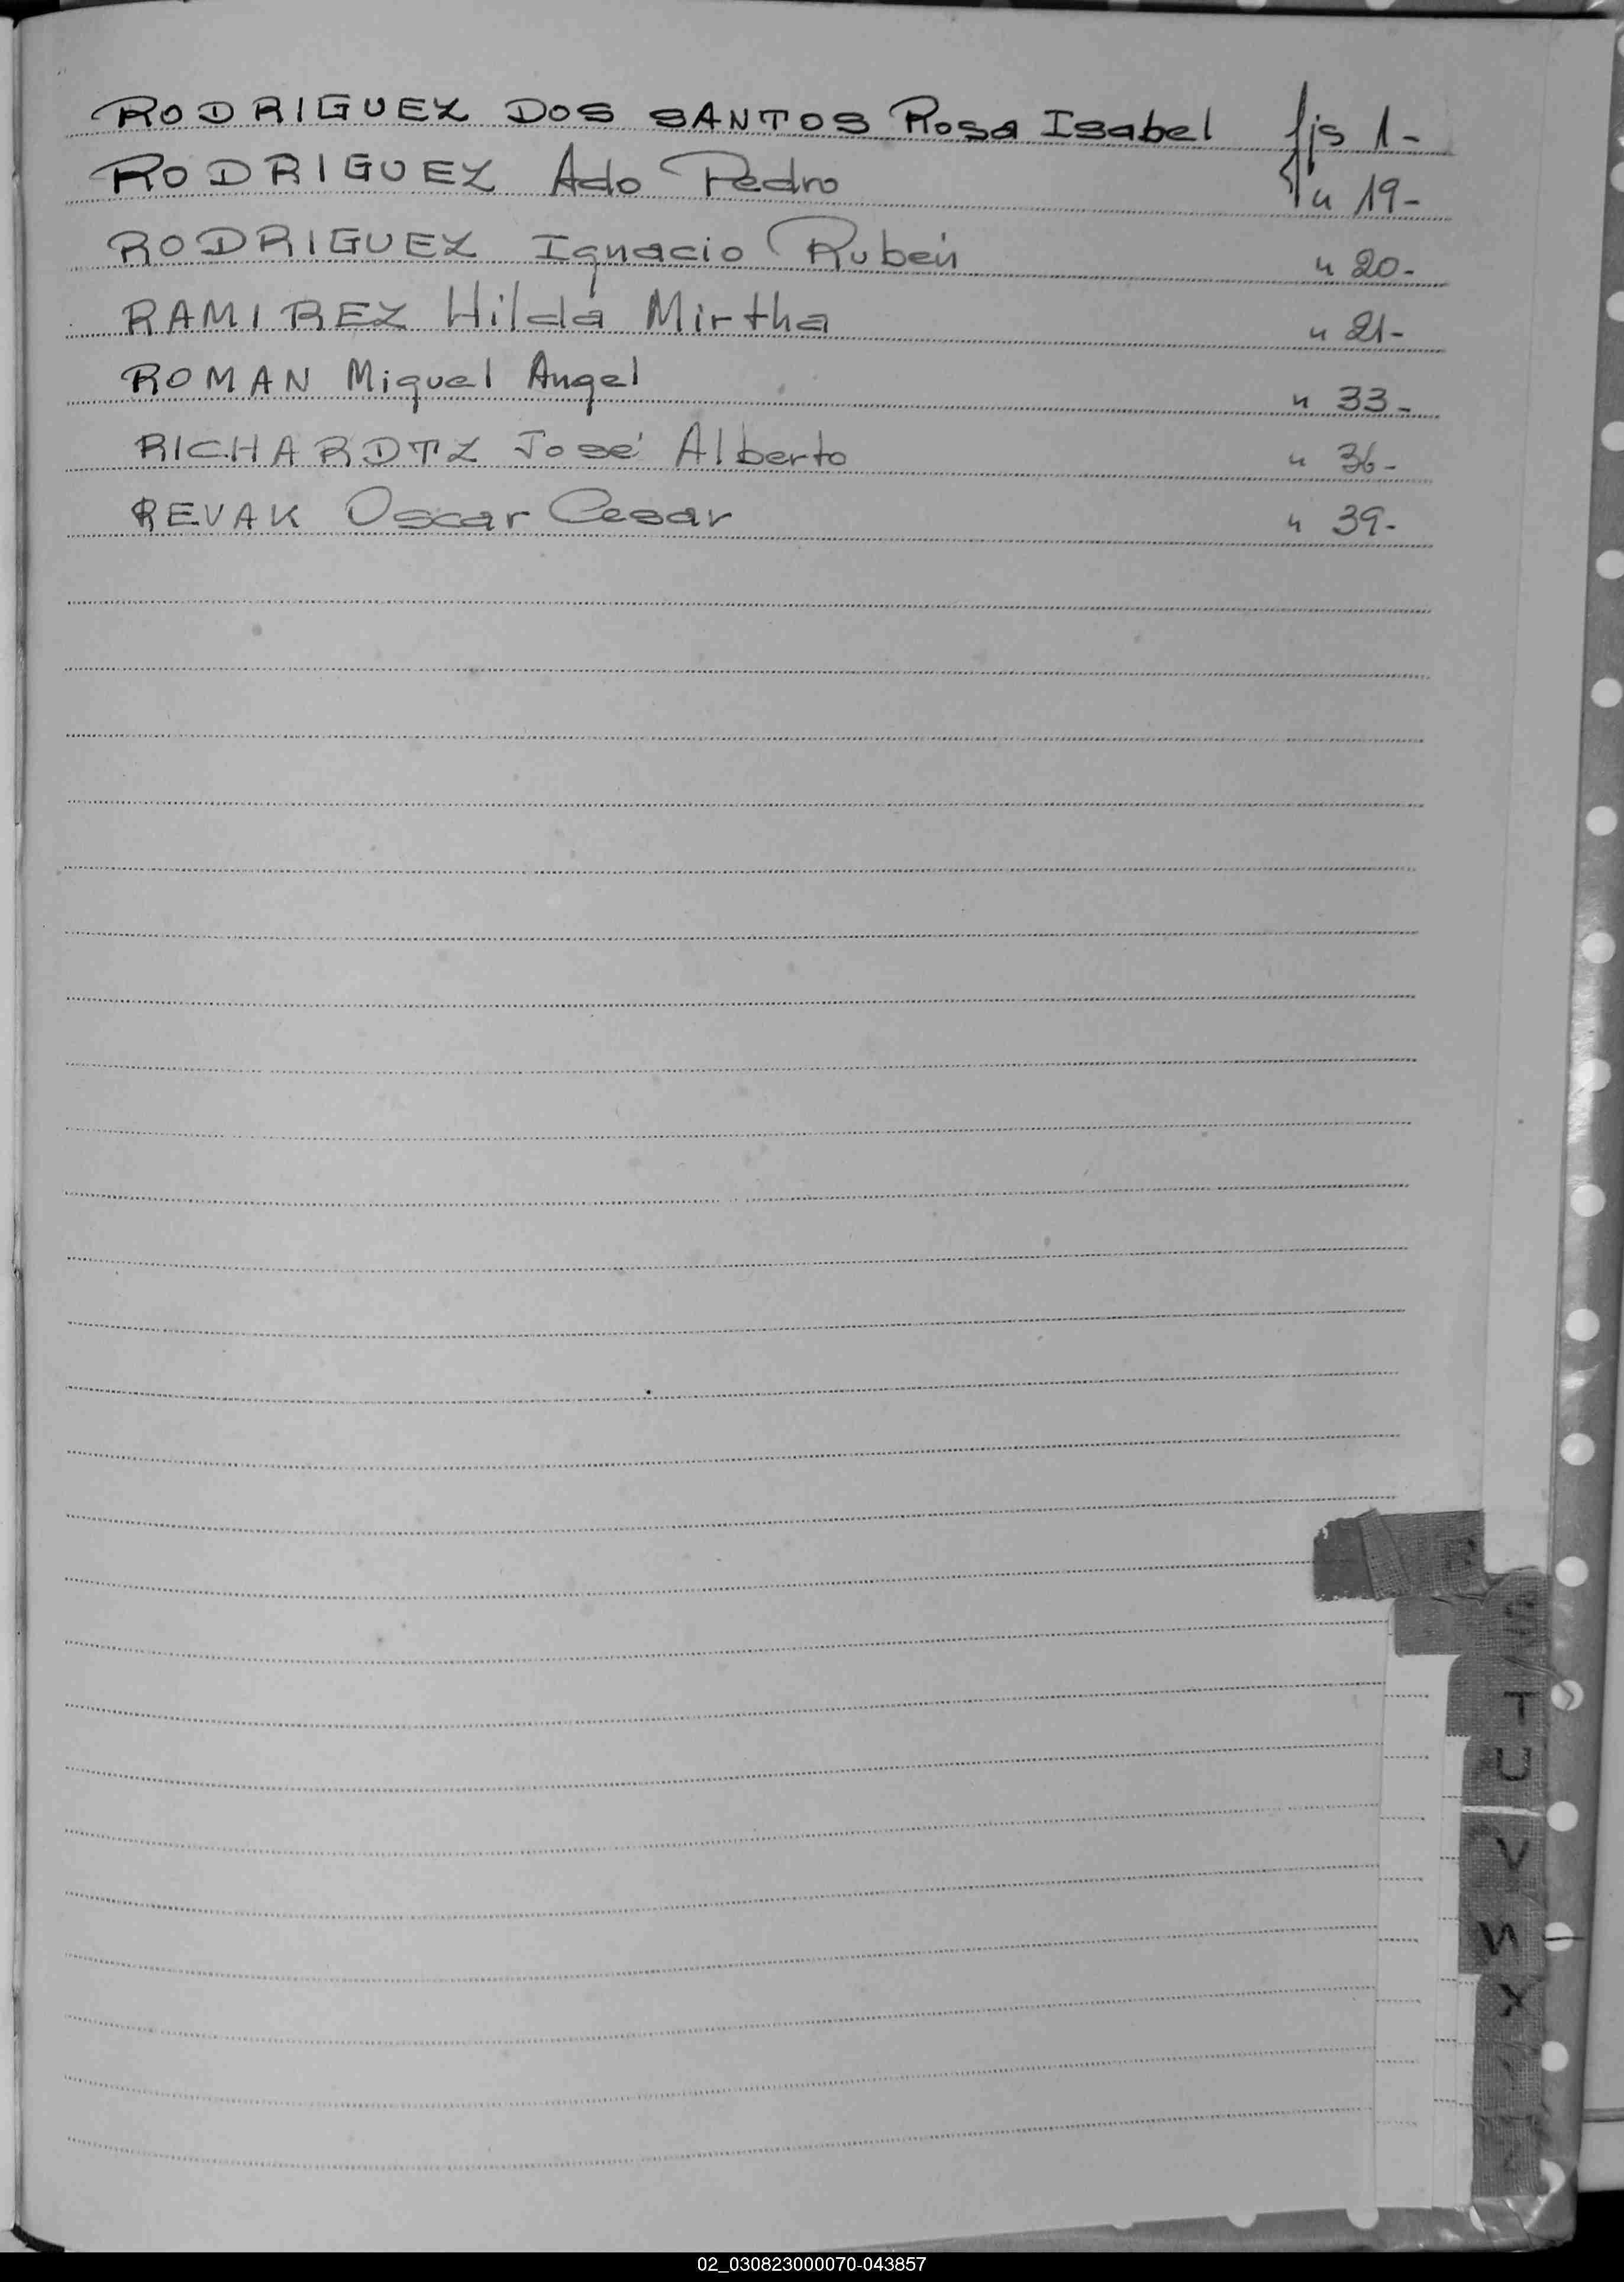 RODRIGUEZ DOS SANTOS Rosa Isabel fjs 1-
RODRIGUEZ Ado Pedro " 19-
RODRIGUEZ Ignacio Rubén " 20-
RAMIREZ Hilda Mirtha " 21-
ROMAN Miguel Angel " 33-
RICHARDTZ José Alberto " 36-
REVAK Oscar Cesar " 39-
R
S
T
U
V
W
X
02_030823000070-043857